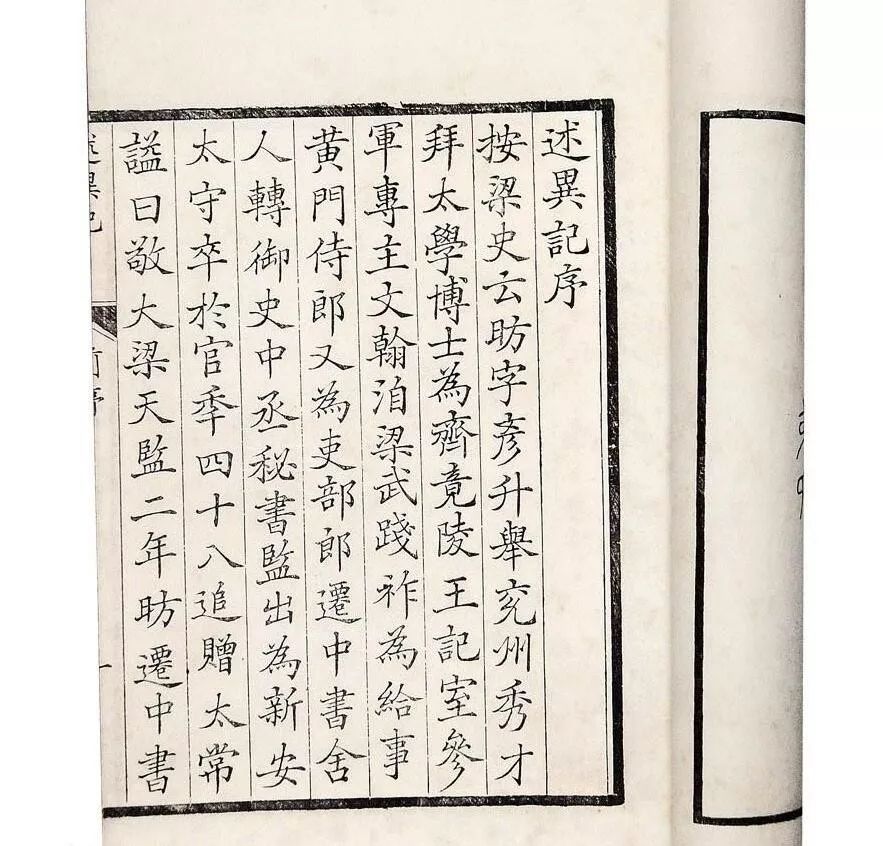 述異記序
按梁史云昉字彥升舉兖州秀才
拜太學博士為齊竟陵王記室參
軍專主文翰洎梁武踐祚為給事
黃門侍郎又為吏部郎遷中書舍
人轉御史中丞秘書監出為新安
太守卒於官年四十八追贈太常
謚曰敬大梁天監二年昉遷中書